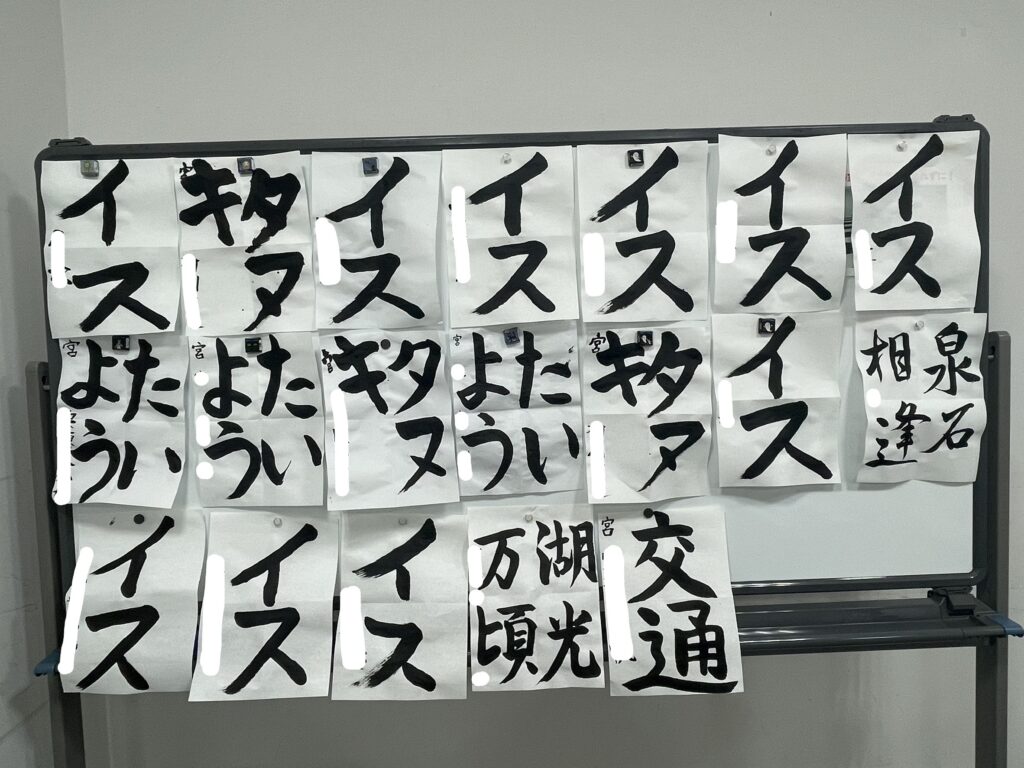 イス
タヌ
キ
イス
イス
イス
イス
イス
たい
よう
宮
たい
よう
宮
タヌ
キ
宮
たい
よう
宮
タヌ
キ
宮
イス
泉石
相逢
イス
イス
イス
湖光
万頃
交通
宮